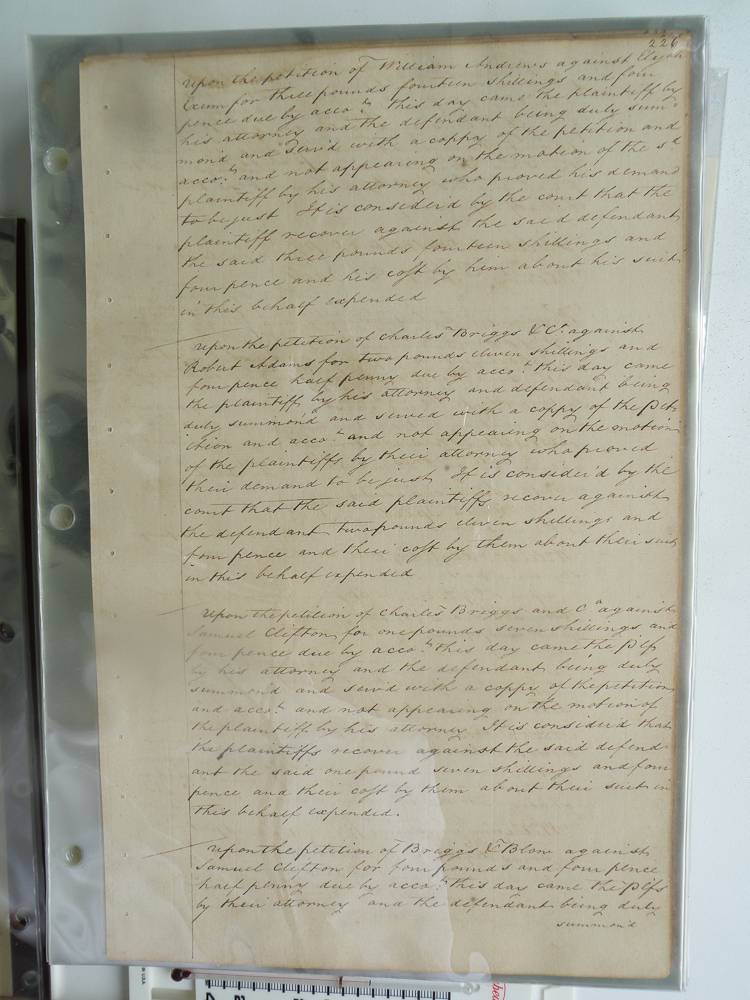 226
Upon the petition of William Andrews against Elijah
Exum for three pounds fourteen shillings and four
pence due by acco.t this day came the plaintiff by
his attorney and the defendant being duly summ
mond and Serv'd with a coppy of the petition and
acco.t and not appearing on the motion of the s.d
plaintiff by his attorney who proved his demand
to be just It is consider'd by the court that the
plaintiff recover against the said defendant
the said three pounds fourteen shillings and
four pence and his cost by him about his suit
in this behalf expended
Upon the petition of Charles Briggs & C.o against
Robert Adams for two pounds eleven shillings and
four pence half penny due by acco.t this day came
the plaintiff by his attorney and defendant being
duly summon'd and served with a coppy of the Pet
ition and acco.t and not appearing on the motion
of the plaintiffs by their attorney who proved
their demand to be just It is consider'd by the
court that the said plaintiffs recover against
the defendant two pounds eleven shillings and
four pence and their cost by them about their suit
in this behalf expended
Upon the petition of Charles Briggs and C.o against
Samuel Clifton for one pounds seven shillings and
four pence due by acco.t this day came the Plfs
by his attorney and the defendant being duly
summon'd and serv'd with a coppy of the petition
and acco.t and not appearing on the motion of
the plaintiff by his attorney It is consider'd that
the plaintiffs recover against the said defend
ant the said one pound seven shillings and four
pence and their cost by them about their suit in
this behalf expended.
Upon the petition of Briggs & Blow against
Samuel Clifton for four pounds and four pence
half penny due by acco.t this day came the Plfs
by their attorney and the defendant being duly
summon'd